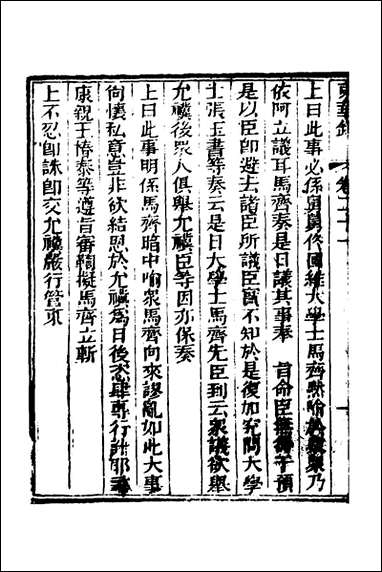 東華錄 卷二十一
上曰此事必係舅舅佟國維大學士馬齊默喻於衆衆乃
依阿立議耳馬齊奏是日議其事奉 旨命臣無得干預
是以臣卽避去諸臣所議臣實不知於是復加究問大學
士張玉書等奏云是日大學士馬齊先臣到云衆議欲舉
允禩後衆人俱舉允禩臣等因亦保奏
上曰此事明係馬齊暗中喻衆馬齊向來謬亂如此大事
尙懷私意豈非欲結恩於允禩爲日後恣肆專行計耶
康親王椿泰等遵旨審鞫擬馬齊立斬
上不忍卽誅卽交允禩嚴行管束